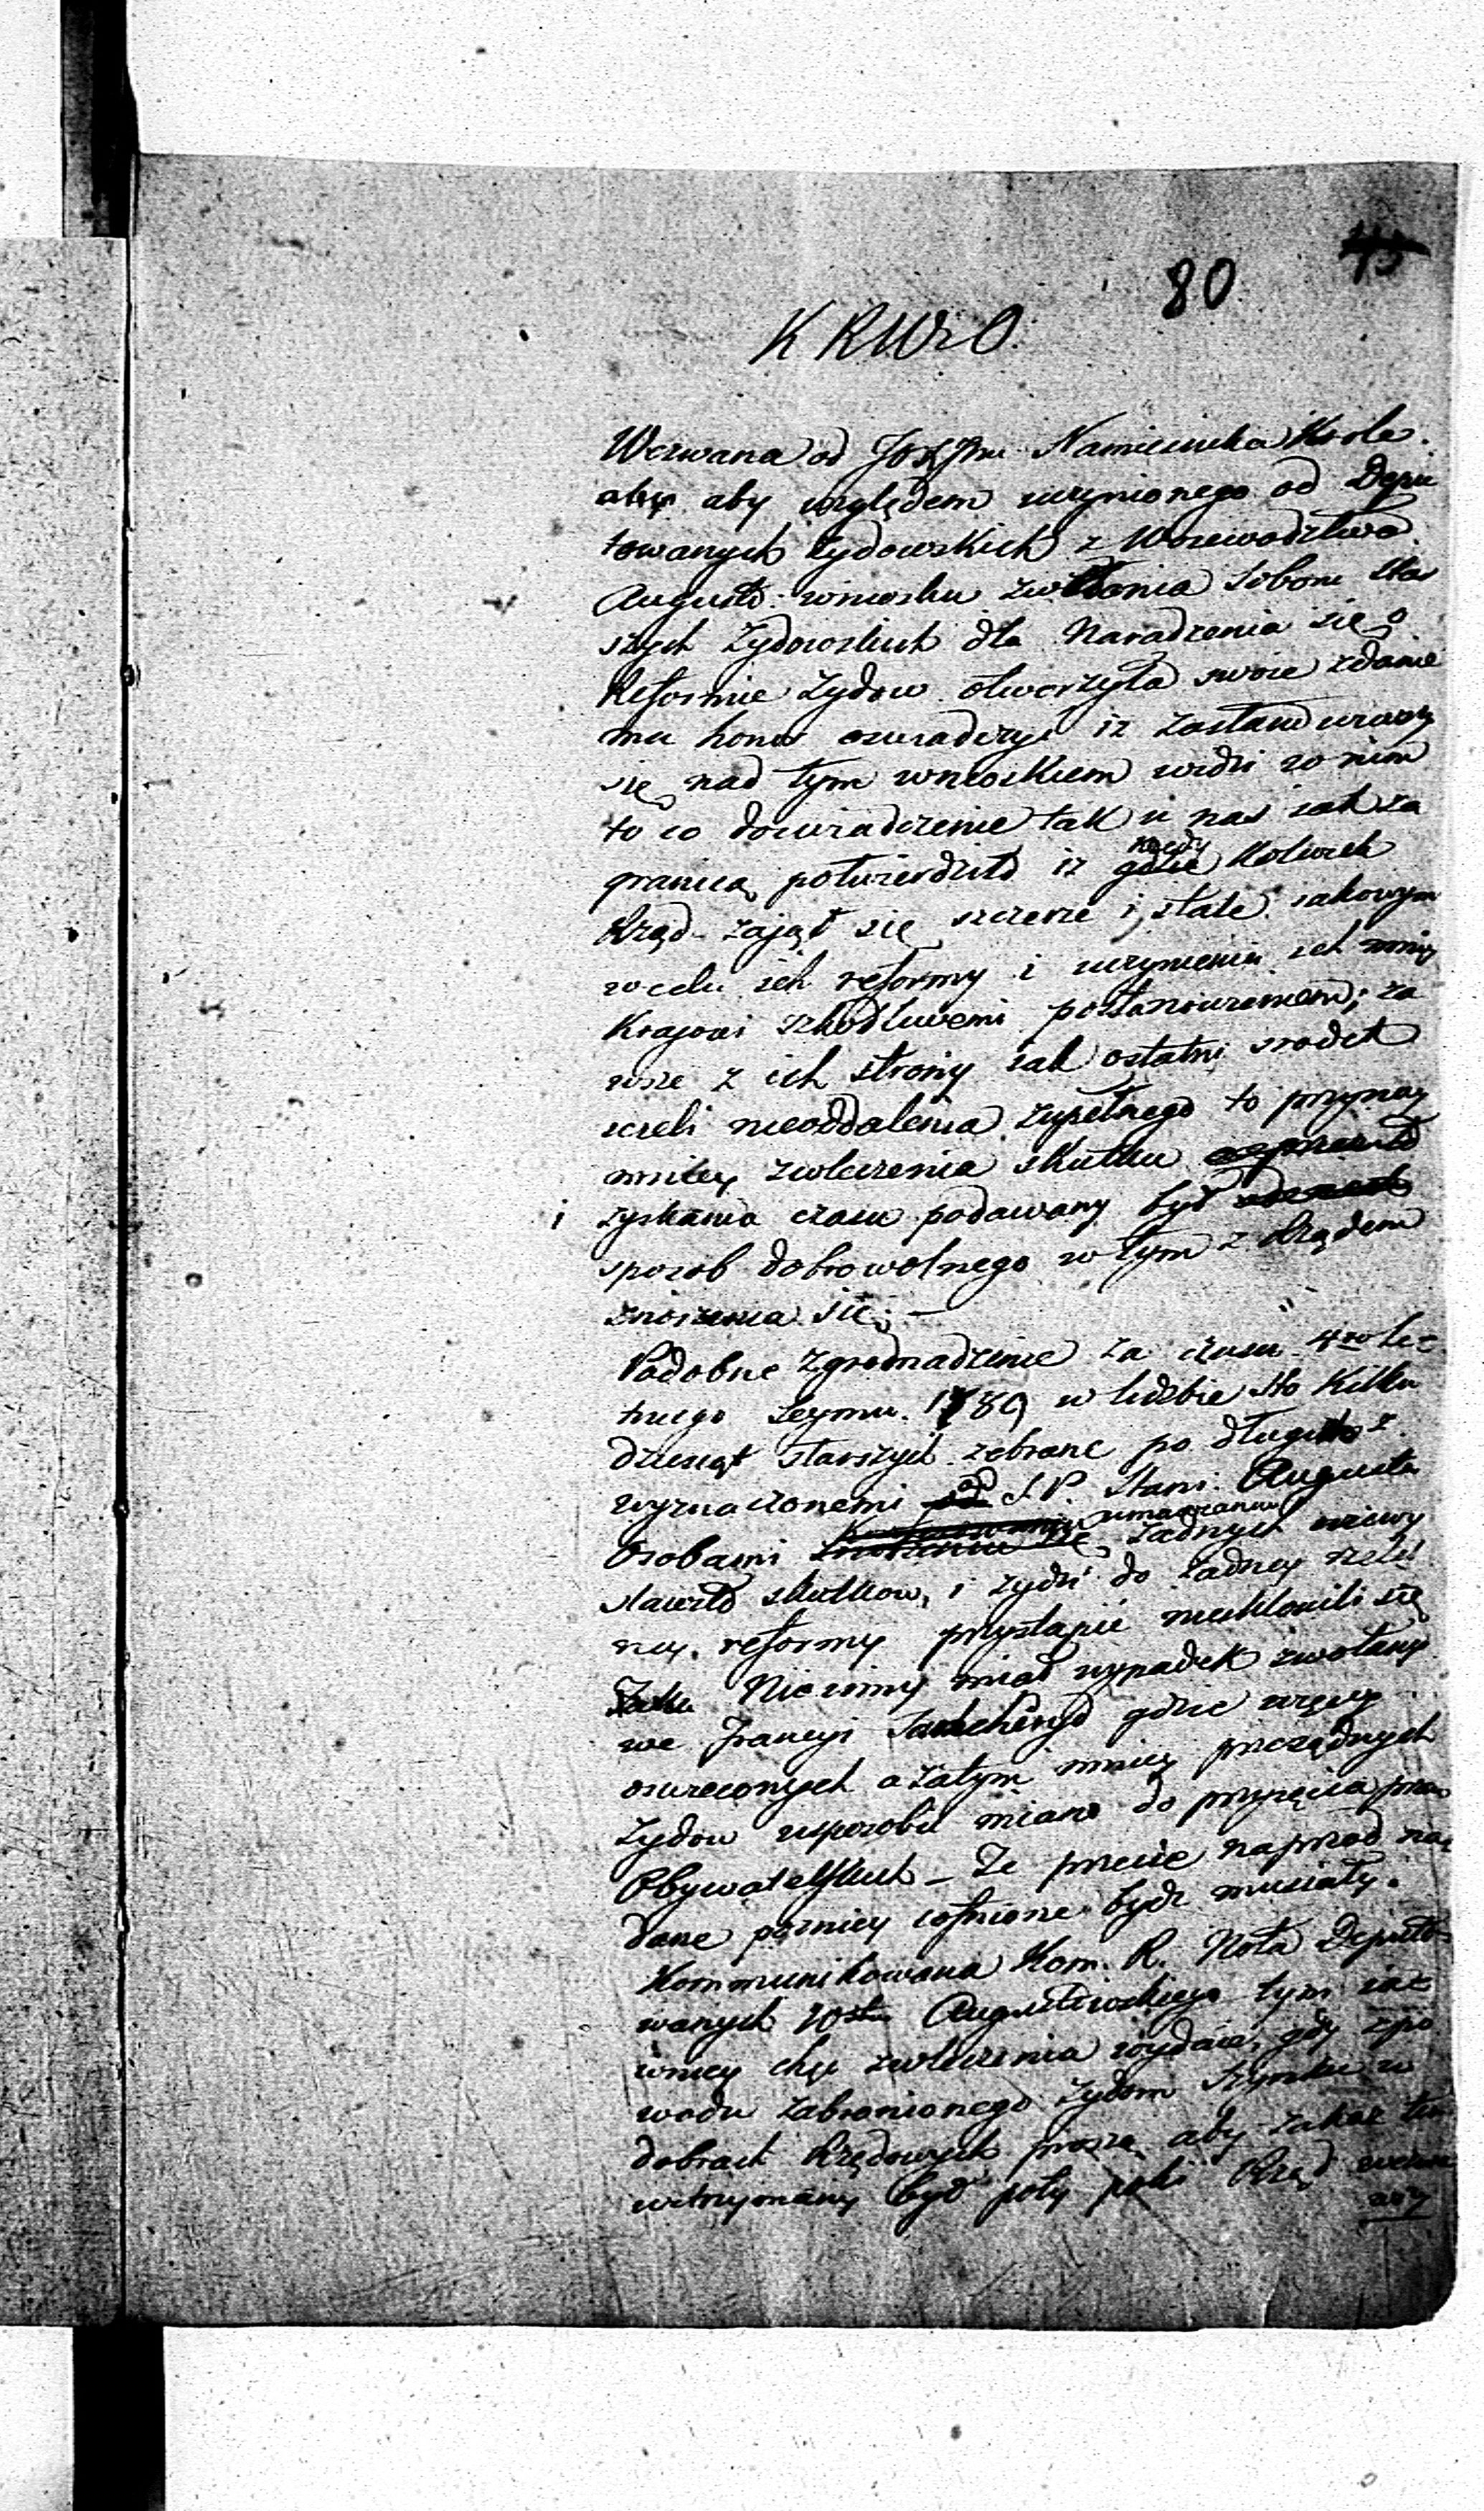 80 45
K R W i O.
Wezwana od JO Xcia Namiestnika Krole.
aby względem uczynionego od Depu
towanych Żydowskich z Woiewodztwa
August: wniosku zwołania Sobom Star
szych Żydowskich dla Naradzenia się o
Reformie Żydow otworzyła swoie zdanie
ma honor oswiadczyć iż zastanowiwszy
się nad tym wnioskiem widzi w nim
to co doswiadczenie tak u nas iak za
granicą potwierdziło iż kiedy gdzie kolwiek
Rząd zajął się szczerze i stale iakowym
w celu ich reformy i uczynienia ich mniey
Krajowi szkodliwemi postanowieniem; za
wsze z ich strony iak ostatni srodek
ieżeli nieoddalenia zupełnego to przynay
mniey zwleczenia skutku
i zyskania czasu podawany był
sposob dobrowolnego w tym z Rządem
znoszenia się; —
Podobne zgromadzenie za czasu 4ro le=
tniego Seymu 1789 w liczbie sto kilku
dziesiąt starszych zebrane po długich z
wyznaczonemi od S.P. Stani. Augusta
Osobami umawianiu żadnych niewy
dawało skutkow, i żydzi do żadney rzetel
ney reformy przystąpić nieskłonili się
Nie inny miał wypadek zwołany
we Francyi Sanhedryn gdzie więcey
oswieconych a zatym mniey przesądnych
Żydow usposobić miano do przyjęcia praw
Obywatelskich – Że przecie naprzod na,
dane pozniey cofnione bydź musiały.
Kommunikowana Kom. R. Nota Deputo=
wanych Wdztwa Augustowskiego tym ia=
wniey chęć zwleczenia wydaie, gdy z po
wodu zabronionego Żydom Szynku w
dobrach Rządowych proszą aby zakaz ten
wstrzymany był poty poki Rząd